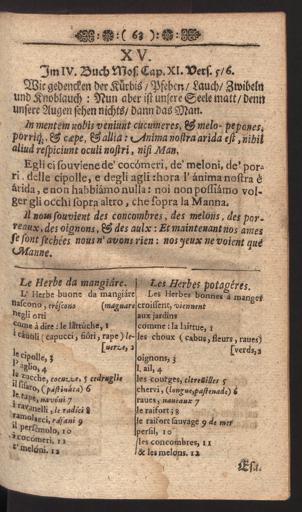 ( 63 )
XV.
Im IV. Buch Mos. Cap. XI. Vers. 5/6.
Wir gedencken der Kürbis / Pfeben / Lauch / Zwibeln
und Knoblauch : Nun aber ist unsere Seele matt / denn
unsere Augen sehen nichts / dann das Man.
In mentem nobis veniunt cucumeres, & melo-pepones,
porriq, & cæpe, & allia : Anima nostra arida est, nihil
aliud respiciunt oculi nostri, nisi Man.
Egli ci souviene de' cocómeri, de' meloni, de' por-
ri . delle cipolle, e degli agli : hora l' ánima nostra è
árida, e non habbiámo nulla : noi non possiámo vol-
ger gli occhi sopra altro, che sopra la Manna.
Il nous souvient des concombres, des melons, des por-
reaux, des oignons, & des aulx : Et maintenant nos ames
se sont sechées nous n'avons rien : nos yeux ne voient que
Manne.
Le Herbe da mangiáre.
L' Herbe buone da mangiáre
nascono, créscono (magnare
negli orti
come à dire : le lattuche, 1
i cáuoli (capucci, fióri, rape) le-
[verze, 2
le cipolle, 3
l' aglio, 4
le zucche, cocuzze, 5 cedruglie
il sisaro, (pastináca) 6
le rape, navóni 7
i ravanelli, le radici 8
ramolacci, rafani 9
il persémolo, 10
i cocómeri, 11
i' melóni. 12
Les Herbes potagéres.
Les Herbes bonnes à manger
croissent, viennent
aux jardins
comme : la laitue, 1
les choux (cabus, fleurs, raues)
[verds, 2
oignons, 3
l. ail, 4
les courges, citrouilles 5
chervi, (longue, pastenade) 6
raues, naueaux 7
le raifort ; 8
le raifort sauvage 9 de mer
persil, 10
les concombres, 11
& les melons. 12